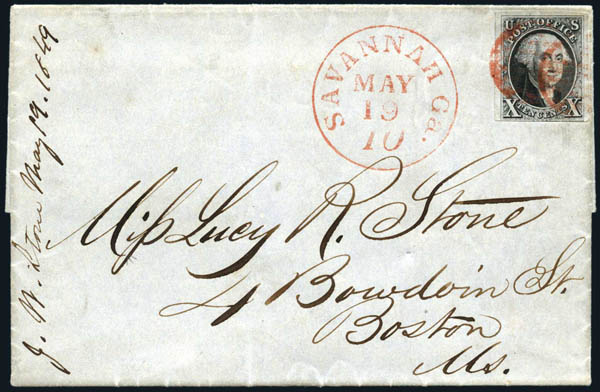 J. W. Stone May 19. 1849
SAVANNAH Ga.
MAY
19
10
U S
POST OFFICE
X TEN CENTS X
Miſs Lucy R. Stone
4 Bowdoin St.
Boston
Ms.